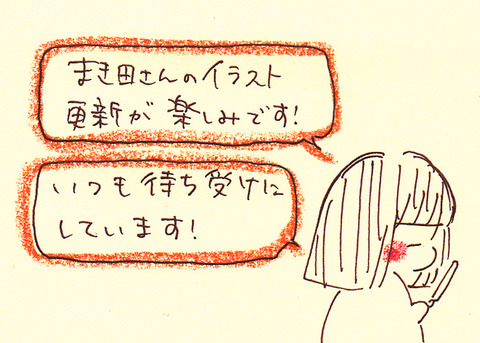 まき田さんのイラスト
更新が楽しみです!
いつも待ち受けに
しています!